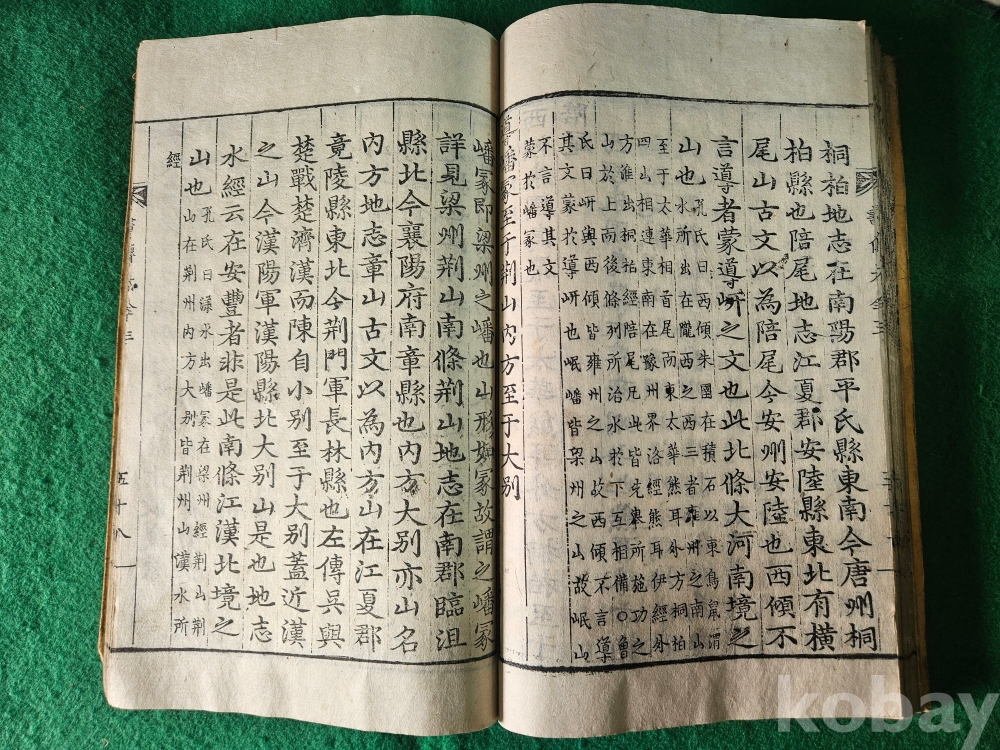 桐柏地志在南陽郡平氏縣東南今唐州桐
柏縣也陪尾地志江夏郡安陸縣東北有橫
尾山古文以為陪尾今安州安陸也西傾不
言導者蒙導岍之文也此北條大河南境之
山也孔氏曰西傾朱圉在積石以東鳥鼠渭
水所出在隴西之西三者雍州之南山
至于太華相首尾而東太華熊耳外方桐柏
四山相連東南在豫州界洛經熊耳伊經外
方淮出桐柏經陪尾凡此皆先舉所施功之
山於上而後條列所治水於下互相備○魯
氏曰岍與西傾皆雍州之山故西傾不言導
其文蒙於導岍也岷嶓皆梁州之山故岷山
不言導其文
蒙於嶓冢也
導嶓冢至于荊山內方至于大別
嶓冢即梁州之嶓也山形如冢故謂之嶓冢
詳見梁州荊山南條荊山地志在南郡臨沮
縣北今襄陽府南章縣也內方大別亦山名
內方地志章山古文以為內方山在江夏郡
竟陵縣東北今荊門軍長林縣也左傳吳與
楚戰楚濟漢而陳自小別至于大別蓋近漢
之山今漢陽軍漢陽縣北大別山是也地志
水經云在安豐者非是此南條江漢北境之
山也孔氏曰漾水出嶓冢在梁州經荊山荊
山在荊州內方大別皆荊州山漢水所
經
五十八
kobay